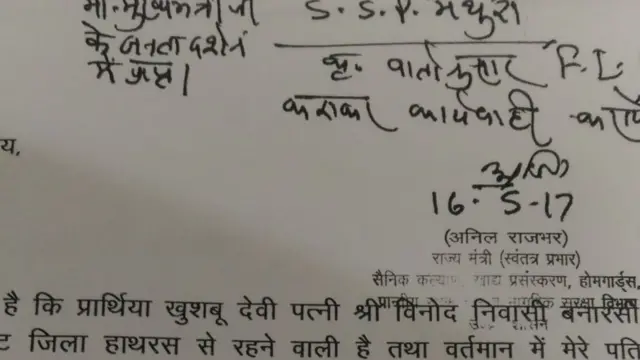 मा. मुख्यमंत्री जी
के जनता दर्शन
में प्राप्त।
S. S. P. मथुरा
कृ. वार्तानुसार F. I.
कराकर कार्यवाही
16-5-17
य,
(अनिल राजभर)
राज्य मंत्री (स्वतंत्र प्रभार)
सैनिक कल्याण, खाद्य प्रसंस्करण, होमगार्ड्स,
नागरिक सुरक्षा विभाग
है कि प्रार्थिया खुशबू देवी पत्नी श्री विनोद निवासी बनारसी
ट जिला हाथरस से रहने वाली है तथा वर्तमान में मेरे पति